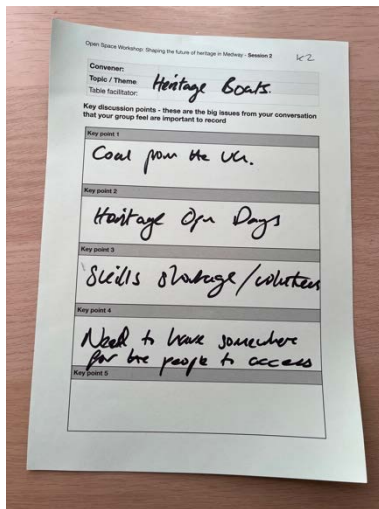 Open Space Workshop: Shaping the future of heritage in Medway - Session 2
K2
Convener:
Topic / Theme: Heritage Boats.
Table facilitator:
Key discussion points - these are the big issues from your conversation
that your group feel are important to record
Key point 1
Coal from the UK.
Key point 2
Heritage Open Days
Key point 3
Skills shortage/volunteers
Key point 4
Need to have somewhere
for the people to access
Key point 5